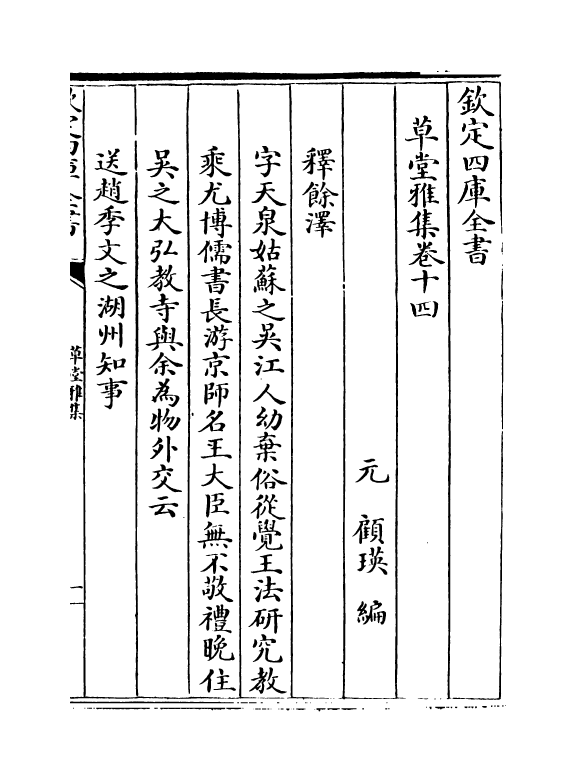 欽定四庫全書
草堂雅集卷十四
元　顧瑛　編
釋餘澤
字天泉姑蘇之吳江人幼棄俗從覺王法研究教
乘尤博儒書長游京師名王大臣無不敬禮晚住
吳之大弘教寺與余為物外交云
送趙季文之湖州知事
欽定四庫全書
草堂雅集
一